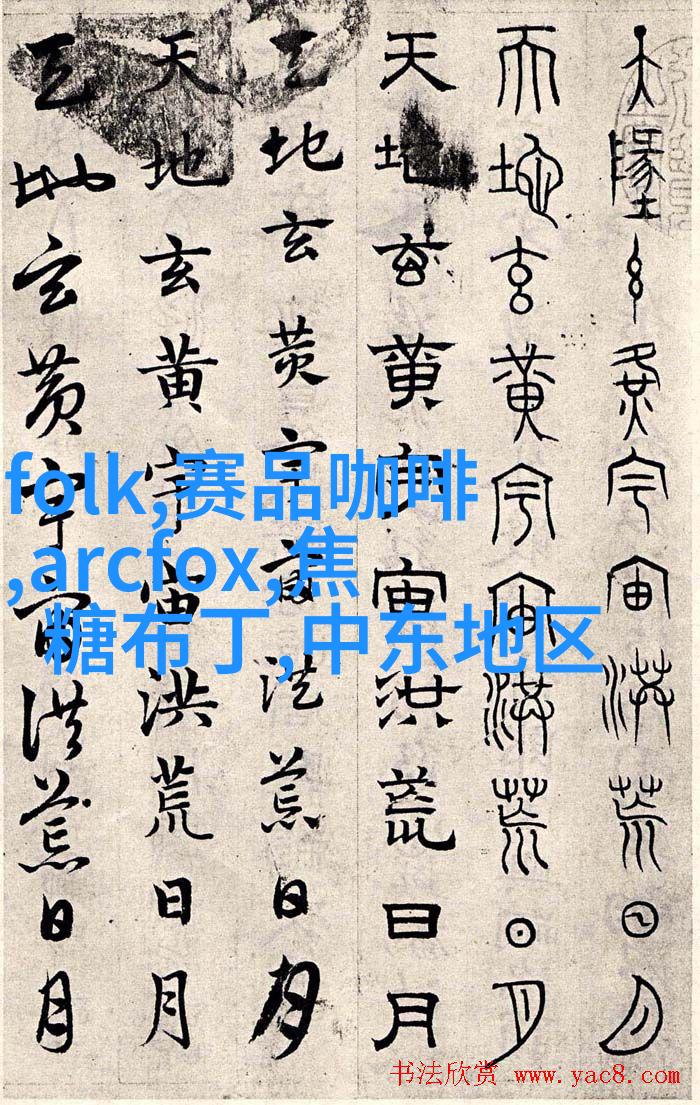 天墬玄黄宇宙洪荒日月
天地玄黄宇宙洪荒日月
天地玄黄宇宙洪荒日月
天地玄黄宇宙洪荒日月
天地玄黄宇宙洪荒日月
天地玄黄宇宙洪荒日月
folk,赛品咖啡
,arcfox,焦
糖布丁,中东地区
书法欣赏 www.yac8.com